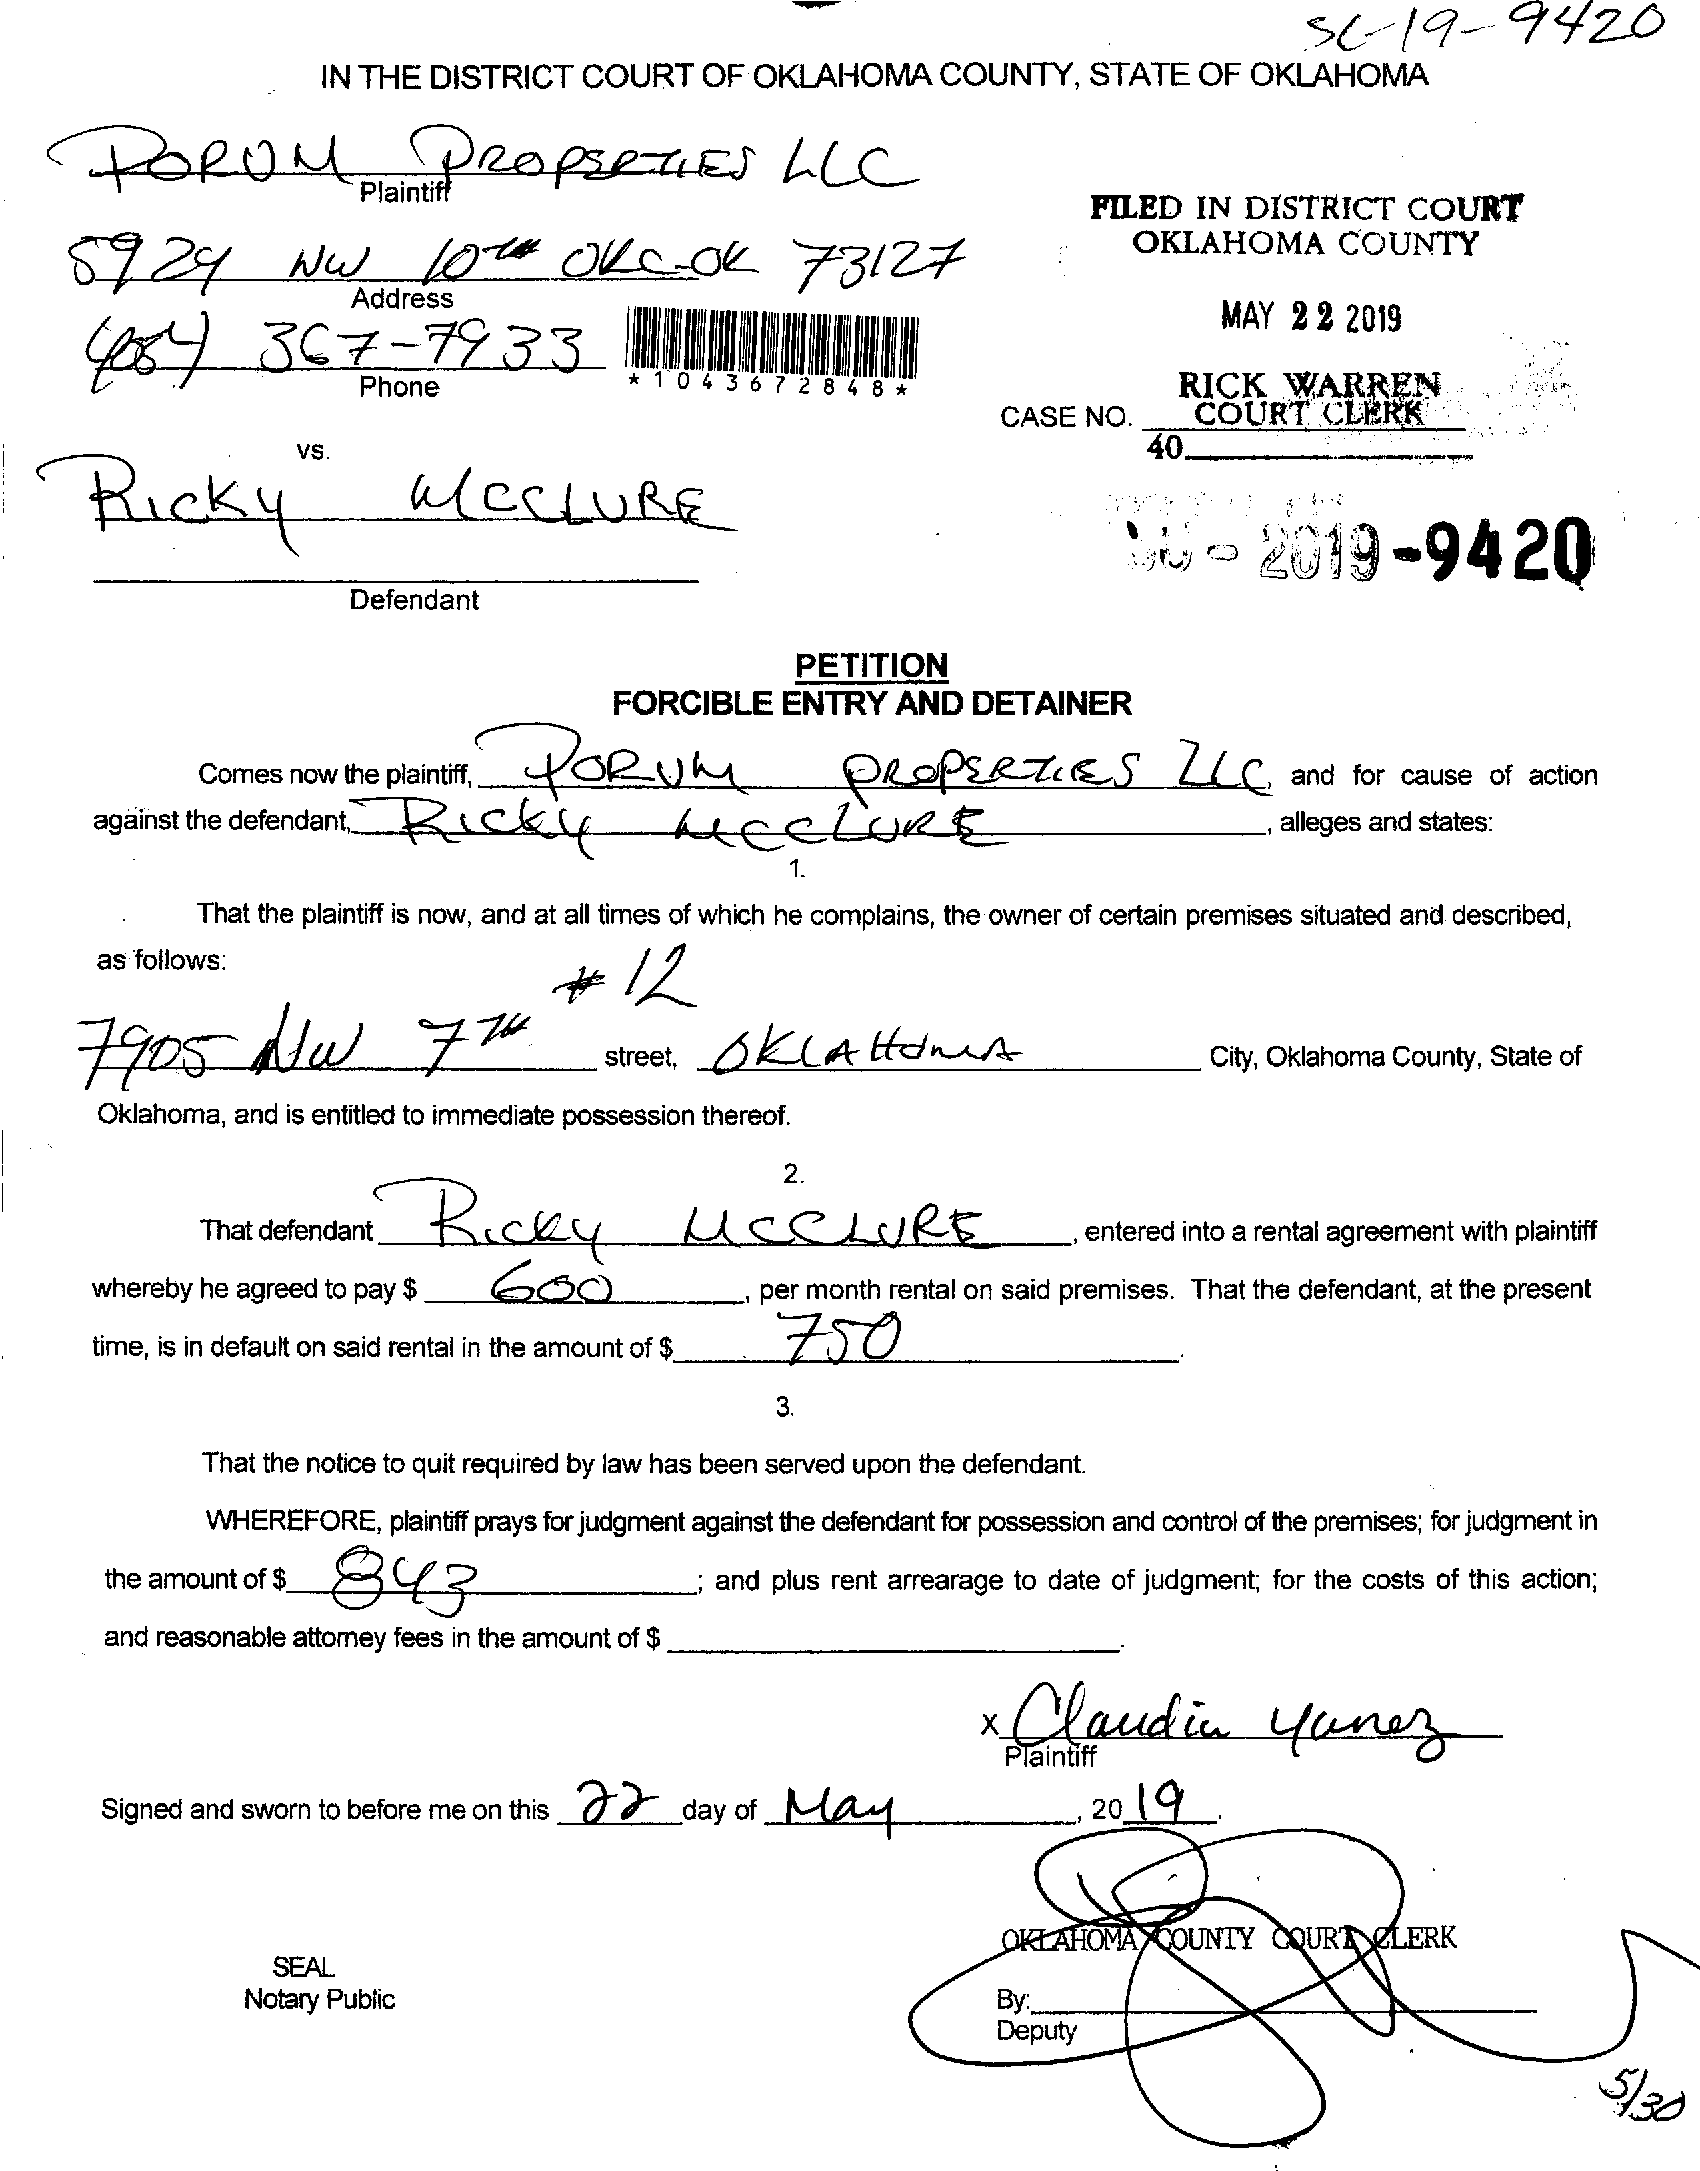 SC-19-9420
IN THE DISTRICT COURT OF OKLAHOMA COUNTY, STATE OF OKLAHOMA
PORUM PROPERTIES LLC
Plaintiff
5924 NW 10TH OKC-OK 73127
Address
367-7933
Phone
*1043672848*
FILED IN DISTRICT COURT
OKLAHOMA COUNTY
MAY 22 2019
RICK WARREN
COURT CLERK
CASE NO.
40
vs.
RICKY MCCLURE
- 2019-9420
Defendant
PETITION
FORCIBLE ENTRY AND DETAINER
Comes now the plaintiff, PORUM PROPERTIES LLC, and for cause of action
against the defendant, RICKY MCCLURE, alleges and states:
1.
That the plaintiff is now, and at all times of which he complains, the owner of certain premises situated and described,
as follows:
# 12
7905 NW 7TH street, OKLAHOMA City, Oklahoma County, State of
Oklahoma, and is entitled to immediate possession thereof.
2.
That defendant RICKY MCCLURE, entered into a rental agreement with plaintiff
whereby he agreed to pay $ 600, per month rental on said premises. That the defendant, at the present
time, is in default on said rental in the amount of $ 750.
3.
That the notice to quit required by law has been served upon the defendant.
WHEREFORE, plaintiff prays for judgment against the defendant for possession and control of the premises; for judgment in
the amount of $ 843; and plus rent arrearage to date of judgment; for the costs of this action;
and reasonable attorney fees in the amount of $ .
x Claudia Yanez
Plaintiff
Signed and sworn to before me on this 22 day of May, 2019.
OKLAHOMA COUNTY COURT CLERK
SEAL
Notary Public
By:
Deputy
5/30